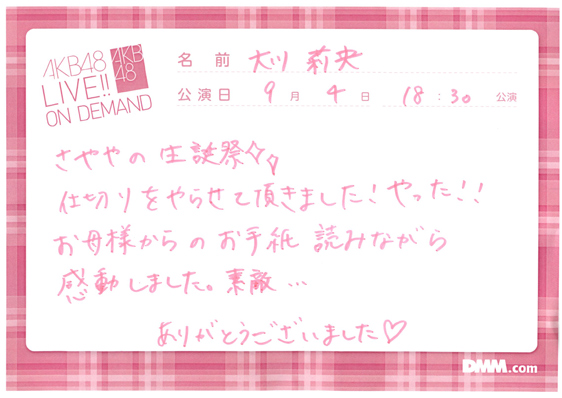 AKB48
LIVE!!
ON DEMAND
AKB
48
名前 大川 莉央
公演日 9月 4日 18:30 公演
さややの生誕祭
仕切りをやらせて頂きました!やった!!
お母様からのお手紙 読みながら
感動しました。素敵…
ありがとうございました♡
DMM.com